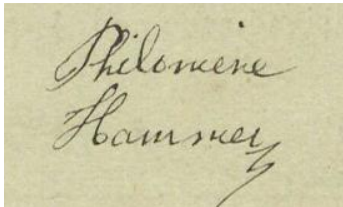 Philomène
Hammer